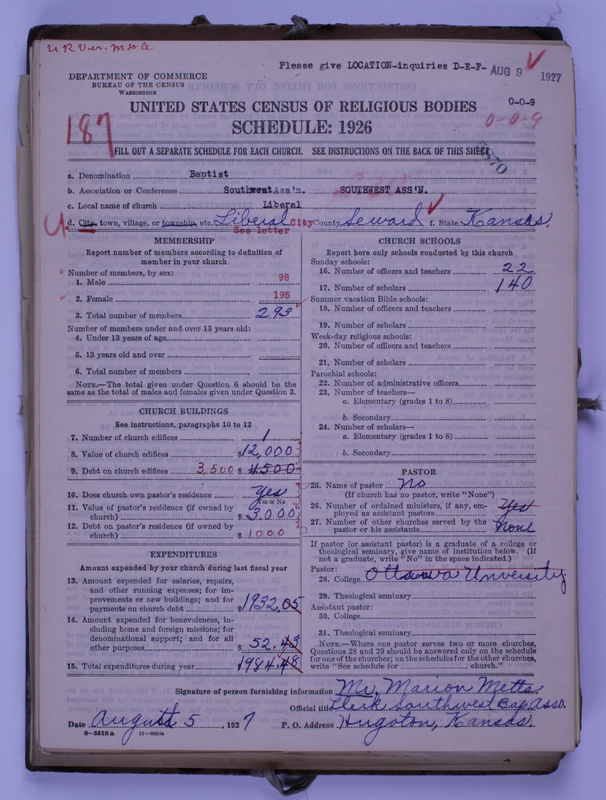 U R Ver. M & A
Please give LOCATION-inquiries D-E-F- AUG 9 1927
DEPARTMENT OF COMMERCE
BUREAU OF THE CENSUS
WASHINGTON
UNITED STATES CENSUS OF RELIGIOUS BODIES
0-0-9
SCHEDULE: 1926
0-0-9
187
FILL OUT A SEPARATE SCHEDULE FOR EACH CHURCH. SEE INSTRUCTIONS ON THE BACK OF THIS SHEET
a. Denomination Baptist
b. Association or Conference Southwest Ass'n. SOUTHWEST ASS'N.
c. Local name of church Liberal
d. City, town, village, or township, etc. Liberal City County Seward f. State Kansas.
See letter
MEMBERSHIP
Report number of members according to definition of
member in your church
Number of members, by sex:
1. Male 98
2. Female 195
3. Total number of members 293
Number of members under and over 13 years old:
4. Under 13 years of age
5. 13 years old and over
6. Total number of members
NOTE.—The total given under Question 6 should be the
same as the total of males and females given under Question 3.
CHURCH BUILDINGS
See instructions, paragraphs 10 to 12
7. Number of church edifices 1
8. Value of church edifices $12,000
9. Debt on church edifices 3,500 $ 4500
10. Does church own pastor's residence Yes
Yes or No
11. Value of pastor's residence (if owned by
church) $3,000
12. Debt on pastor's residence (if owned by
church) $1000
EXPENDITURES
Amount expended by your church during last fiscal year
13. Amount expended for salaries, repairs,
and other running expenses; for im-
provements or new buildings; and for
payments on church debt $1932.05
14. Amount expended for benevolences, in-
cluding home and foreign missions; for
denominational support; and for all
other purposes $52.43
15. Total expenditures during year 1984.48
CHURCH SCHOOLS
Report here only schools conducted by this church
Sunday schools:
16. Number of officers and teachers 22
17. Number of scholars 140
Summer vacation Bible schools:
18. Number of officers and teachers
19. Number of scholars
Week-day religious schools:
20. Number of officers and teachers
21. Number of scholars
Parochial schools:
22. Number of administrative officers
23. Number of teachers—
a. Elementary (grades 1 to 8)
b. Secondary
24. Number of scholars—
a. Elementary (grades 1 to 8)
b. Secondary
PASTOR
25. Name of pastor No
(If church has no pastor, write "None")
26. Number of ordained ministers, if any, em-
ployed as assistant pastors Yes
27. Number of other churches served by the
pastor or his assistants None
If pastor (or assistant pastor) is a graduate of a college or
theological seminary, give name of institution below. (If
not a graduate, write "No" in the space indicated.)
Pastor:
28. College Ottawa University
29. Theological seminary
Assistant pastor:
30. College
31. Theological seminary
NOTE.—Where one pastor serves two or more churches,
Questions 28 and 29 should be answered only on the schedule
for one of the churches; on the schedules for the other churches,
write "See schedule for church."
Signature of person furnishing information Mr. Marion Metts.
Official title Clerk Southwest Bap. Asso.
Date August 5, 1927 P. O. Address Hugoton, Kansas.
8-5518a